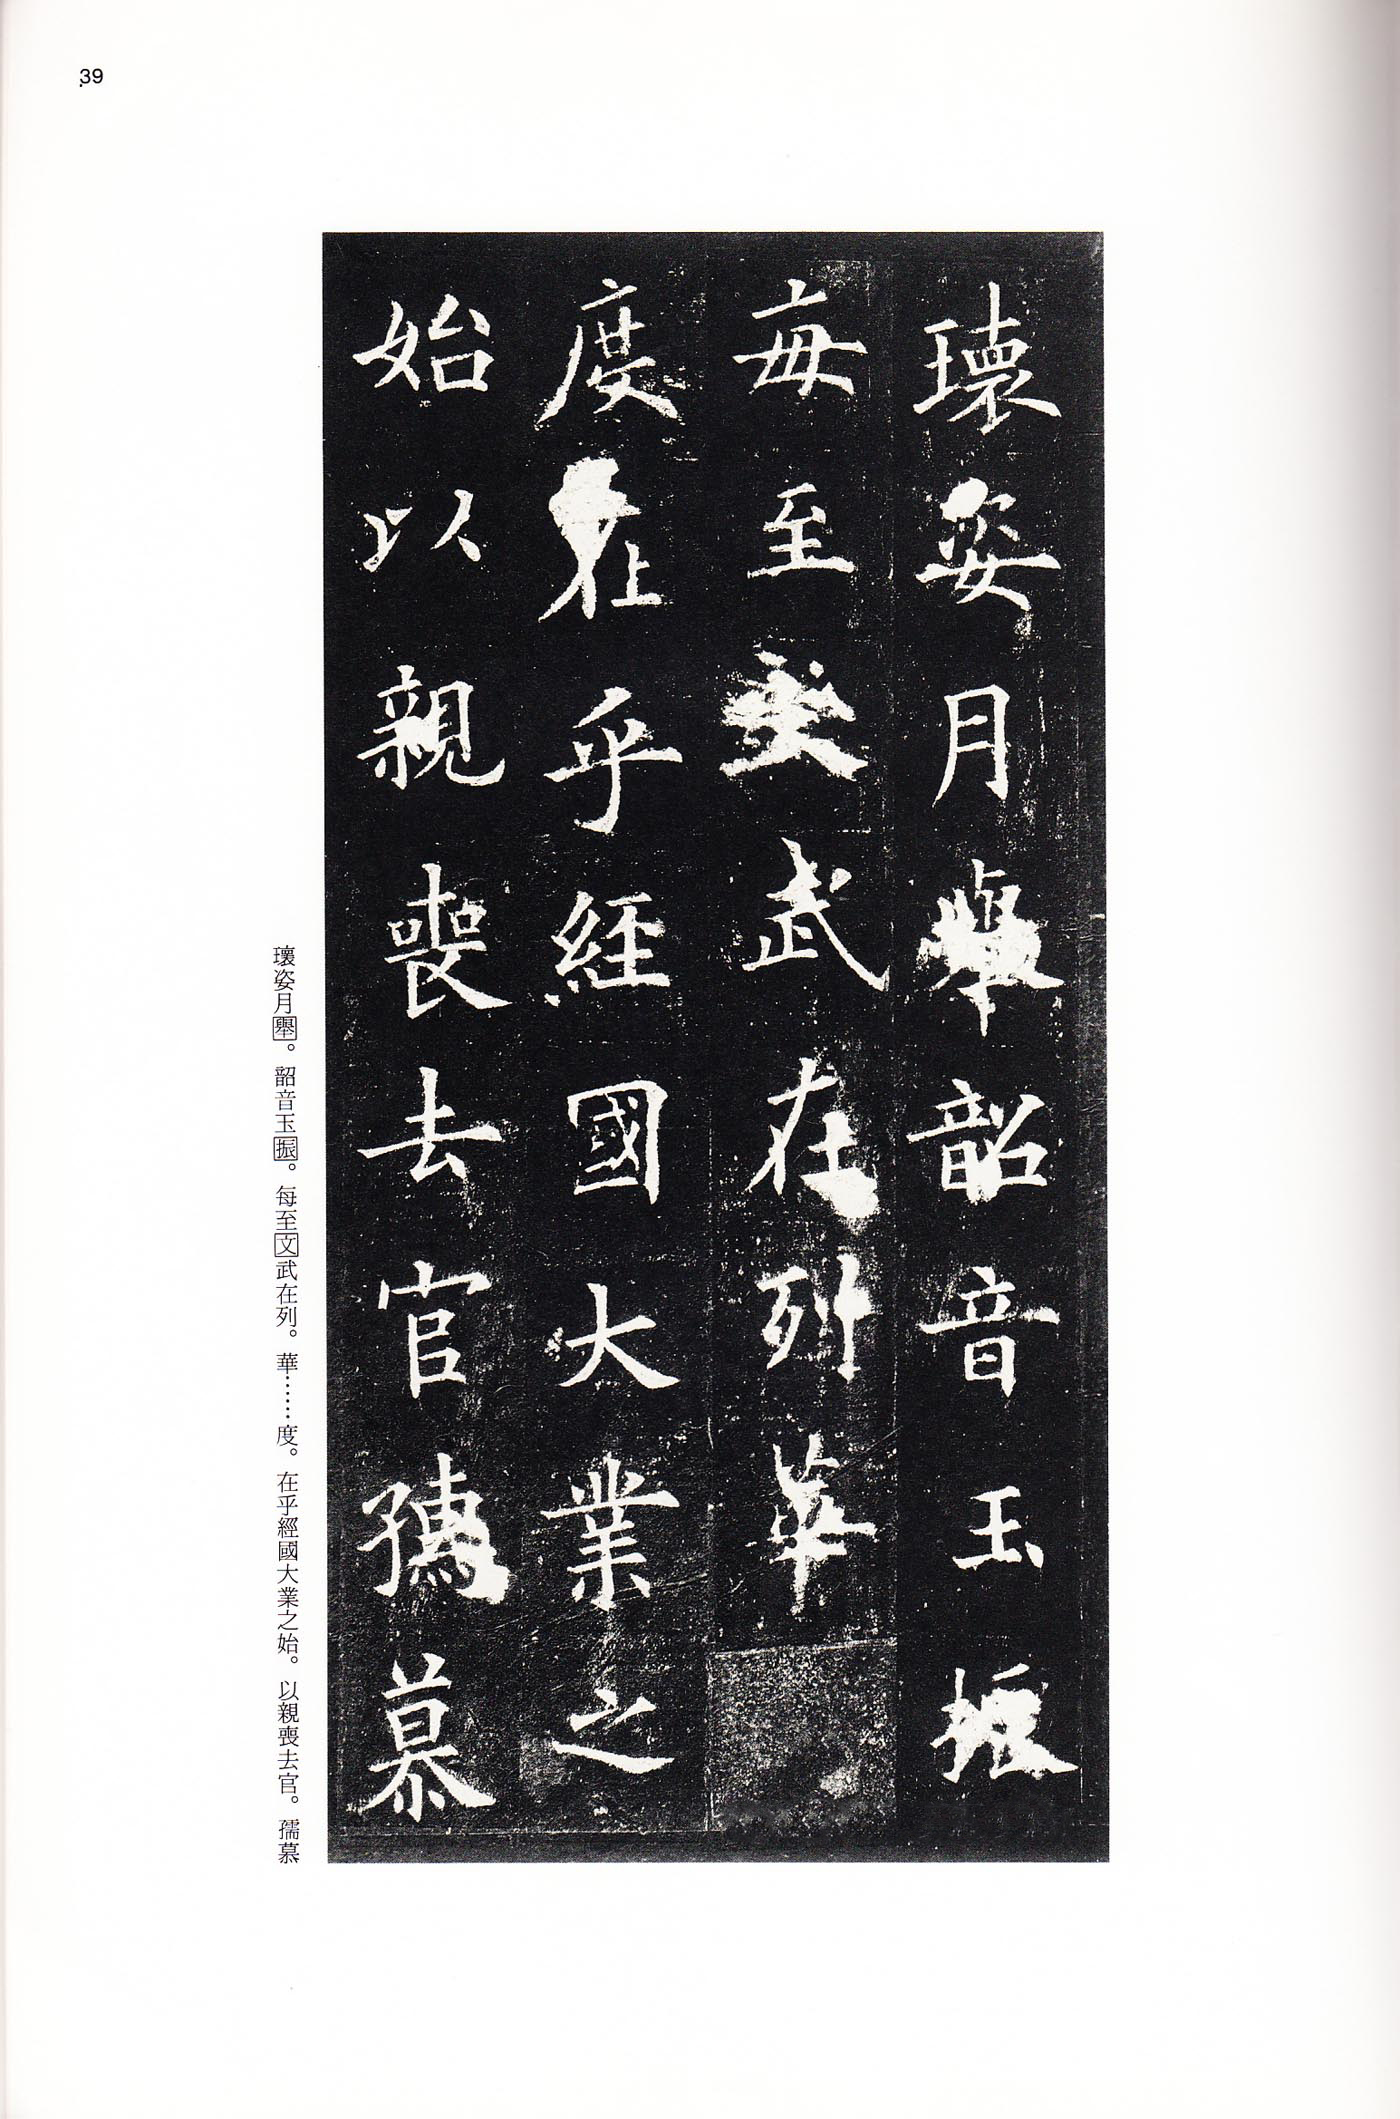 39
瓌姿月舉韶音玉振
每至文武在列華
度在乎經國大業之
始以親喪去官孺慕
瓌姿月舉。韶音玉振。每至文武在列。華……度。在乎經國大業之始。以親喪去官。孺慕